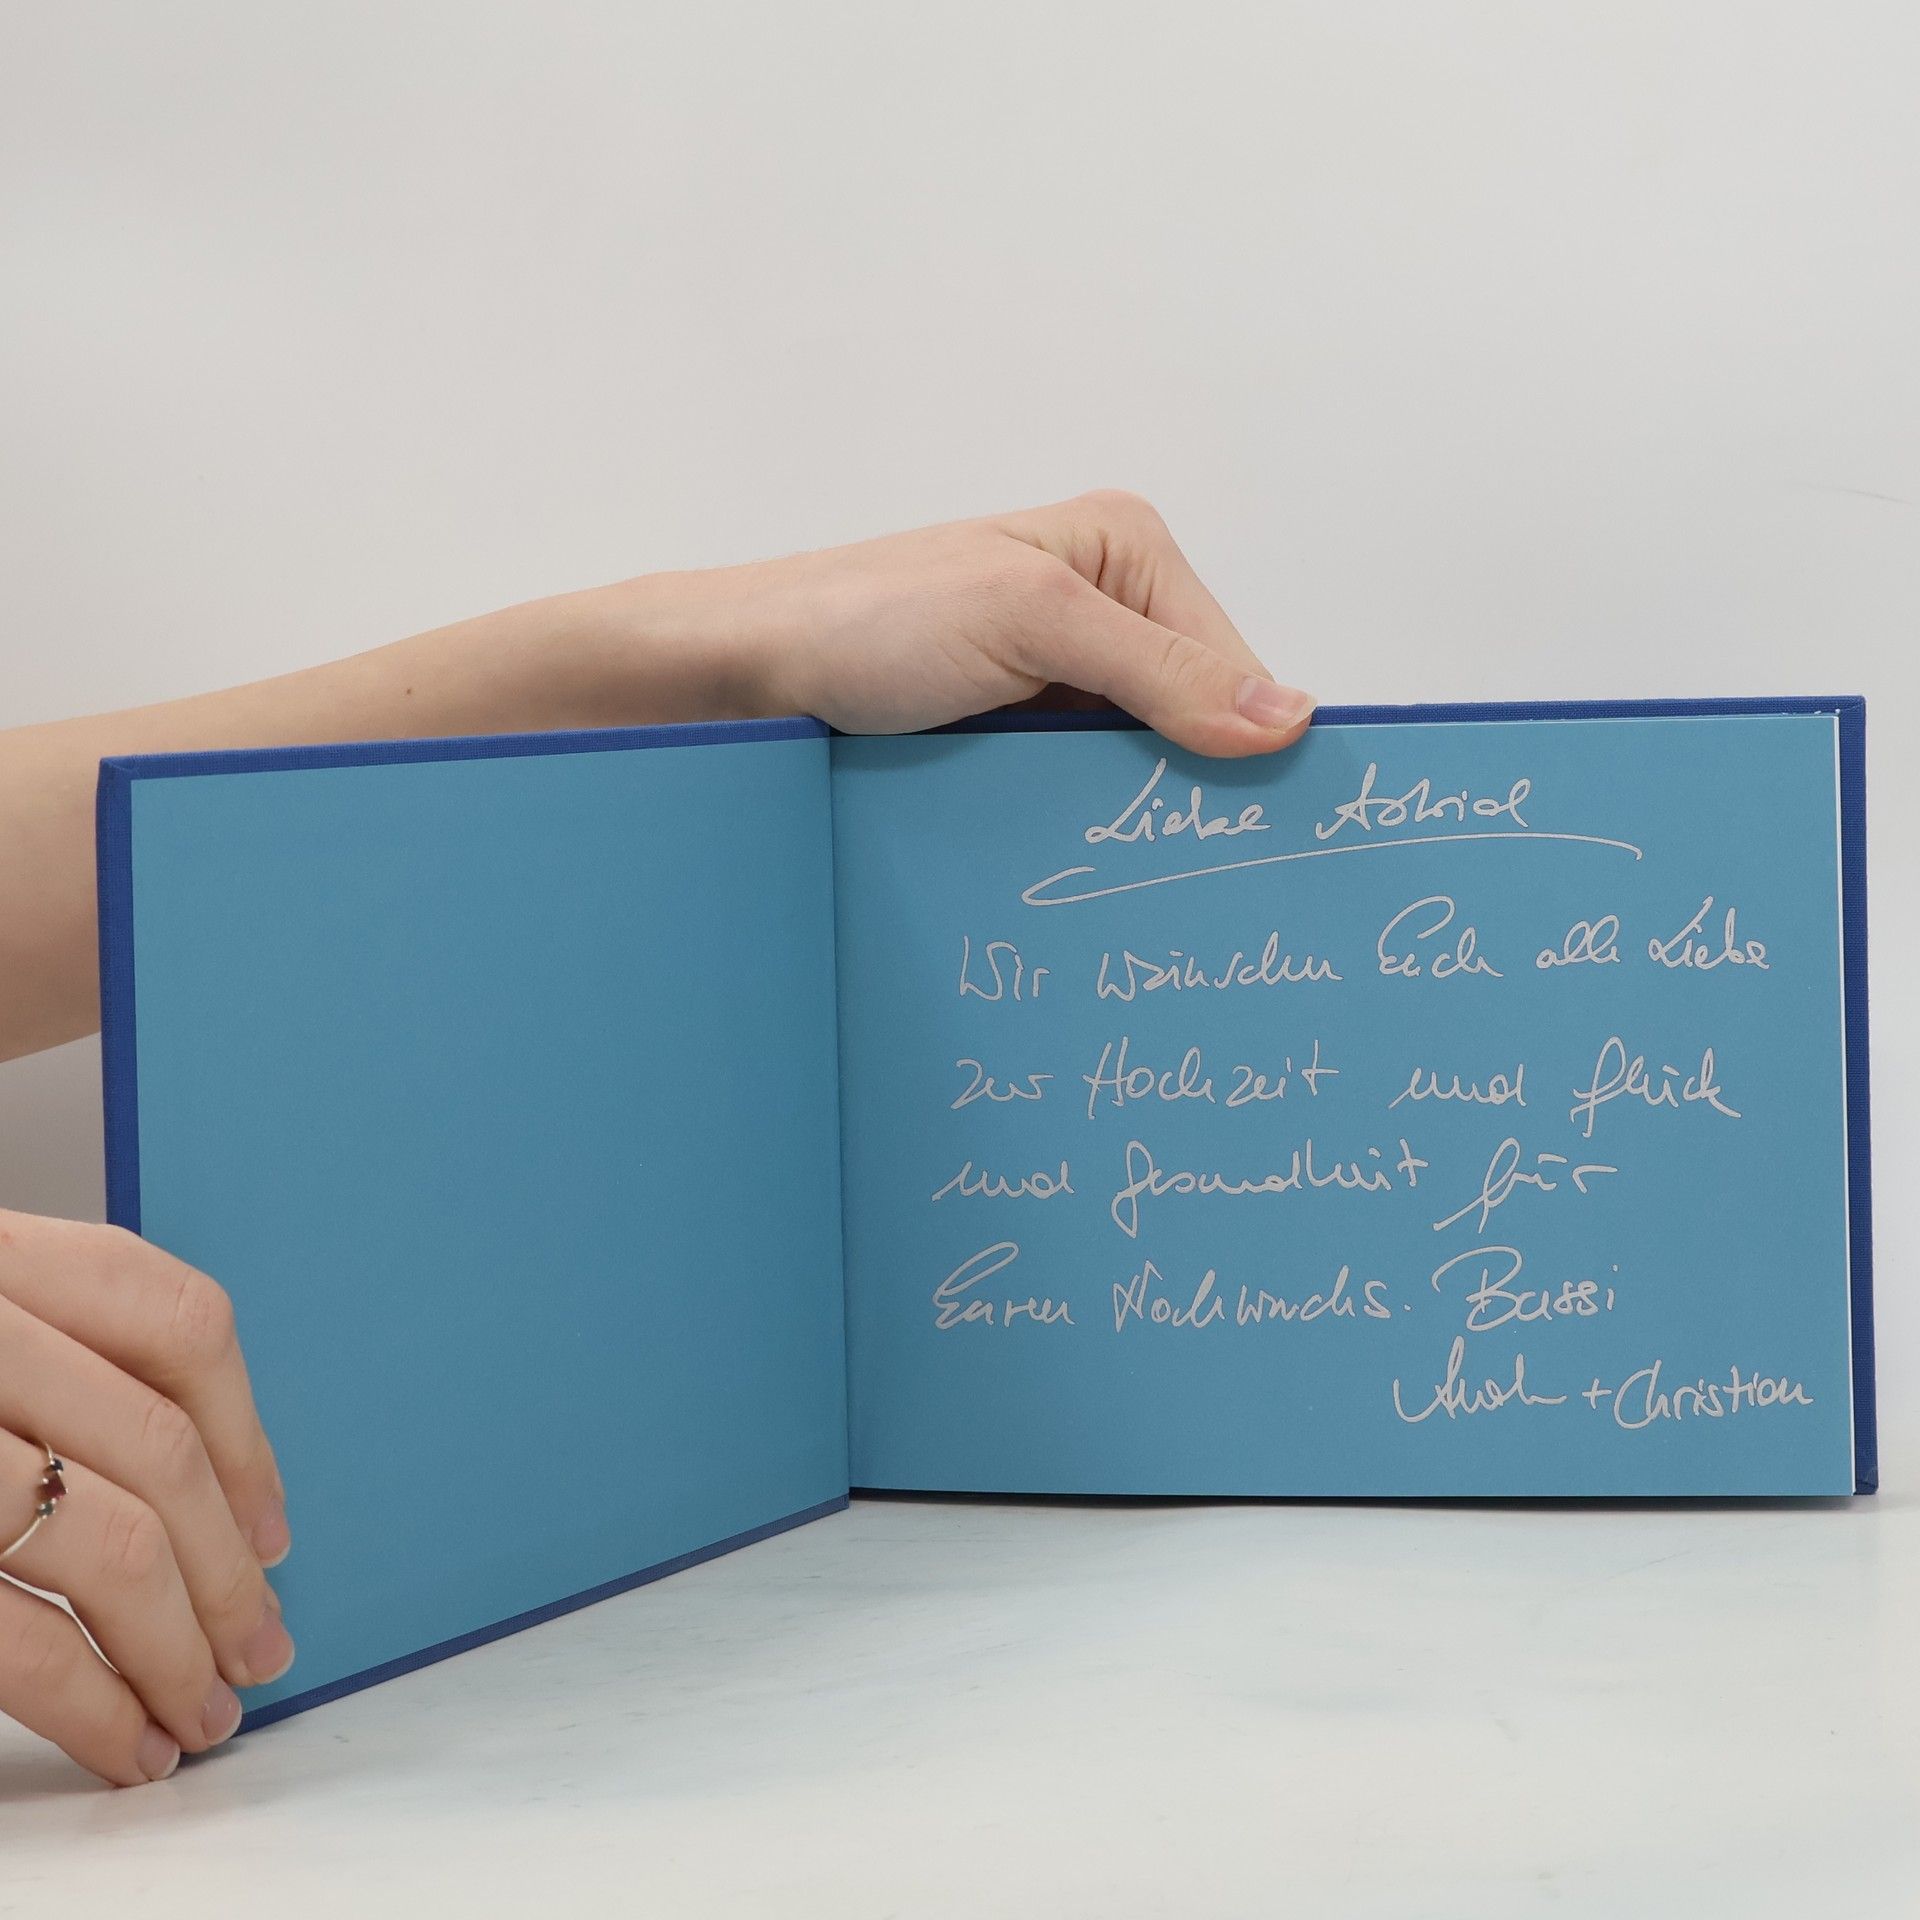 Liebe Astrid
Wir wünschen Euch alle Liebe
zur Hochzeit und Glück
und Gesundheit für
Euren Nachwuchs. Bussi
+ Christian